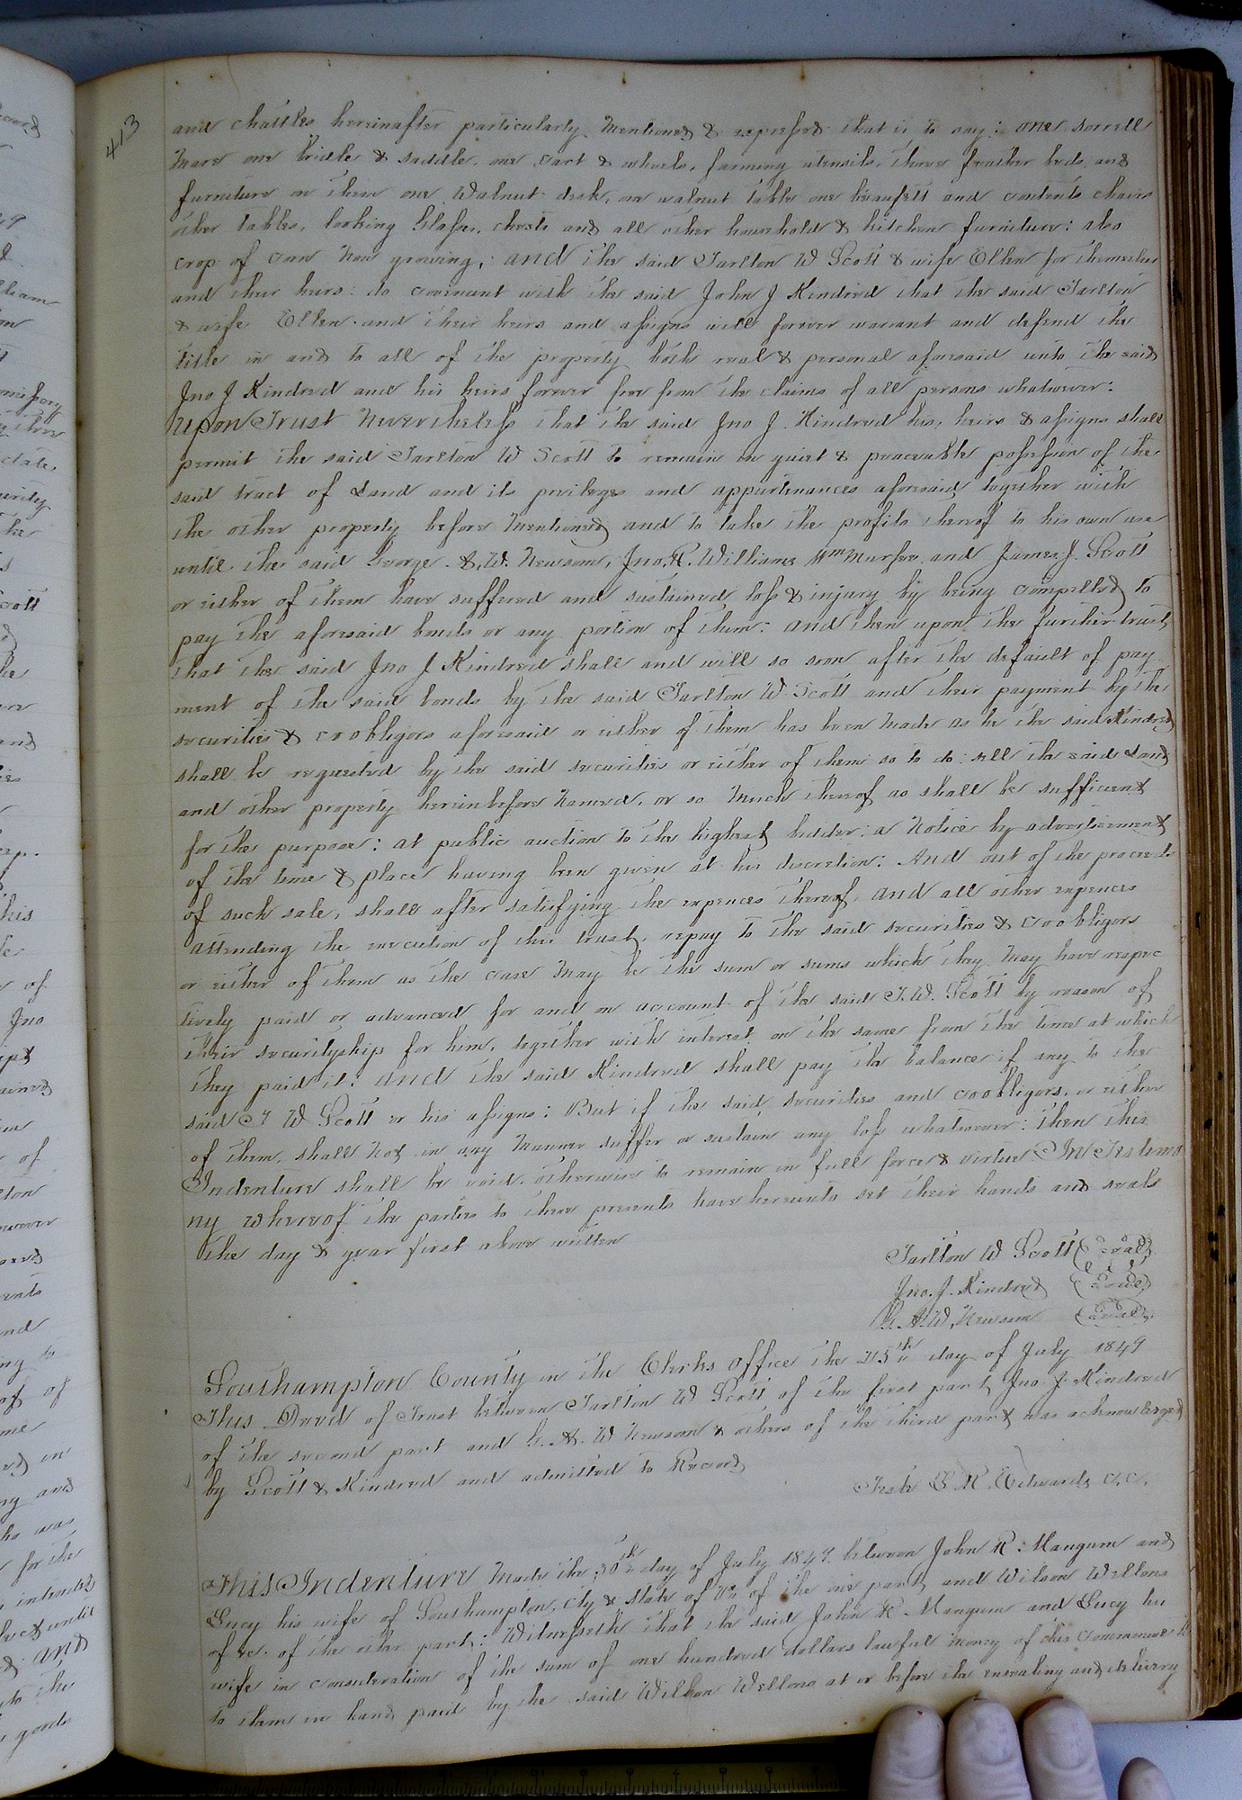 413
and chattles hereinafter particularly mentioned & expressed that is to say: one sorrell
mare one bridle & saddle, one cart & wheels, farming utensils, three feather beds, and
furniture one Walnut desk, one walnut table one beaufett and contents chairs
other tables, looking Glasses, chests and all other household & kitchen furniture: also
crop of corn now growing; and the said Tarlton W Scott & wife Ellen for themselves
and their heirs: do covenant with the said John J Kindred that the said Tarlton
& wife Ellen and their heirs and assigns will forever warrant and defend the
title in and to all of the property both real & personal aforesaid unto the said
Jno J Kindred and his heirs forever free from the claims of all persons whatsoever:
Upon Trust Nevertheless that the said Jno J. Kindred his heirs & assigns shall
permit the said Tarlton W Scott to remain in quiet & peaceable possession of the
said tract of Land and its privileges and appurtenances aforesaid together with
the other property before mentioned and to take the profits thereof to his own use
until the said George A. W. Newsom, Jno. R. Williams Wm Murfee and James J. Scott
or either of them have suffered and sustained loss & injury by being compelled to
pay the aforesaid bonds or any portion of them: and then upon the further trust
that the said Jno J Kindred shall and will so soon after the default of pay
ment of the said bonds by the said Tarlton W Scott and their payment by the
securities & coobligors aforesaid or either of them has been made as he the said Kindred
shall be requested by the said securities or either of them so to do: sell the said Land
and other property hereinbefore named, or so much thereof as shall be sufficient
for the purpose: at public auction to the highest bidder: a notice by advertisement
of the time & place having been given at his discretion: And out of the proceeds
of such sale, shall after satisfying the expences thereof, and all other expences
attending the execution of this trust, repay to the said securities & coobligors
or either of them as the case may be the sum or sums which they may have respec
tively paid or advanced for and on account of the said T. W. Scott by reason of
their securityship for him, together with interest on the same from the time at which
they paid it: and the said Kindred shall pay the balance if any to the
said T W Scott or his assigns: But if the said securities and coobligors, or either
of them, shall not in any manner suffer or sustain any loss whatsoever: then this
Indenture shall be void, otherwise to remain in full force & virtue In Testimo
ny whereof the parties to these presents have hereunto set their hands and seals
the day & year first above written
Tarlton W Scott {Seal}
Jno. J. Kindred {Seal}
G. A. W. Newsom {Seal}
Southampton County in the Clerks office the 25th day of July 1849
This Deed of Trust between Tarlton W Scott of the first part Jno. J. Kindred
of the second part and G. A. W Newsom & others of the third part was acknowledged
by Scott & Kindred and admitted to Record
Teste L R Edwards C.C.
This Indenture Made the 30th day of July 1849 between John R Mangum and
Lucy his wife of Southampton, Cty & State of Va of the one part and Wilson Wellons
of &c. of the other part: Witnesseth that the said John R Mangum and Lucy his
wife in consideration of the sum of one hundred dollars lawful money of this Commonwealth
to them in hand paid by the said Wilson Wellons at or before the ensealing and delivery